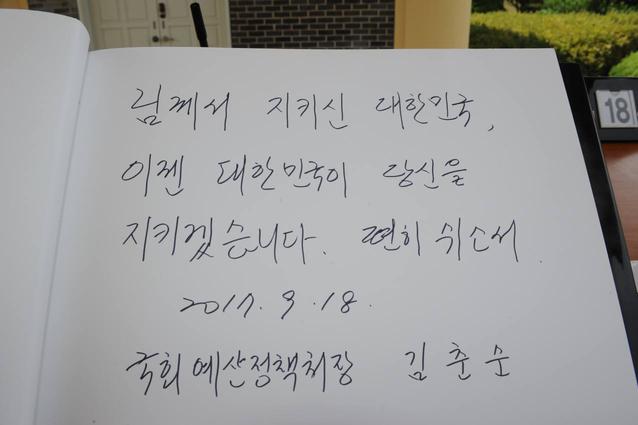 님께서 지키신 대한민국,
이젠 대한민국이 당신을
지키겠습니다. 편히 쉬소서.
2017. 9. 18.
국회예산정책처장 김춘순
18